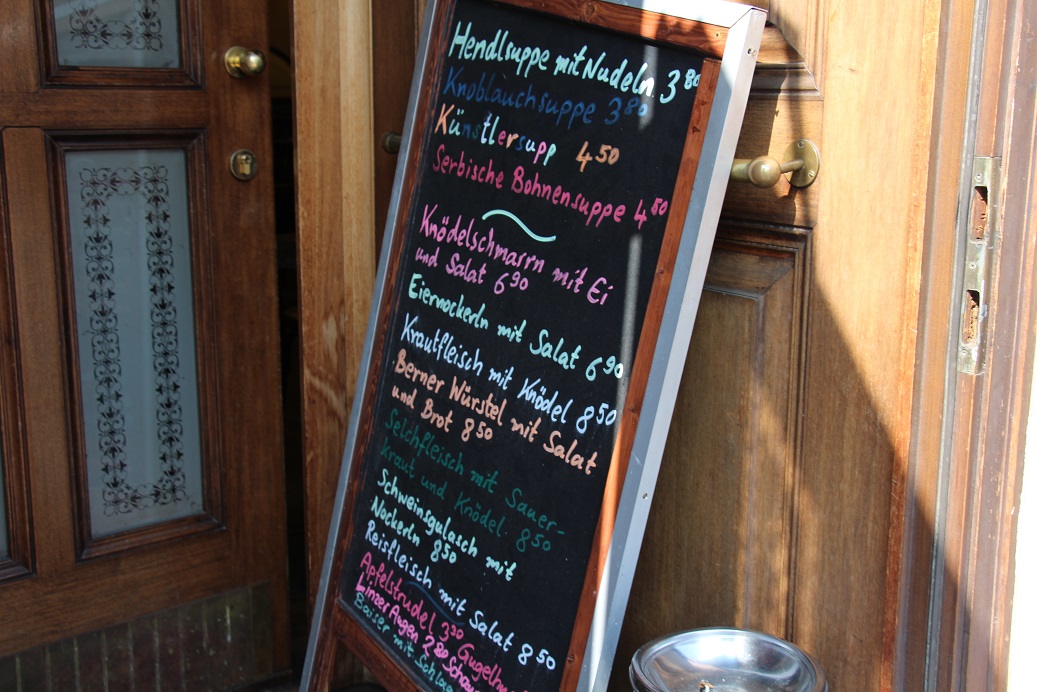 Hendlsuppe mit Nudeln 3 80
Knoblauchsuppe 3 80
Künstlersupp 4 50
Serbische Bohnensuppe 4 50
Knödelschmarrn mit Ei
und Salat 6 90
Eiernockerln mit Salat 6 90
Krautfleisch mit Knödel 8 50
Berner Würstel mit Salat
und Brot 8 50
Selchfleisch mit Sauer-
kraut und Knödel 8 50
Schweinsgulasch mit
Nockerln 8 50
Reisfleisch mit Salat 8 50
Apfelstrudel 3 50 Gugelhu
Linzer Augen 2 80 Schau
Baiser mit Schlag